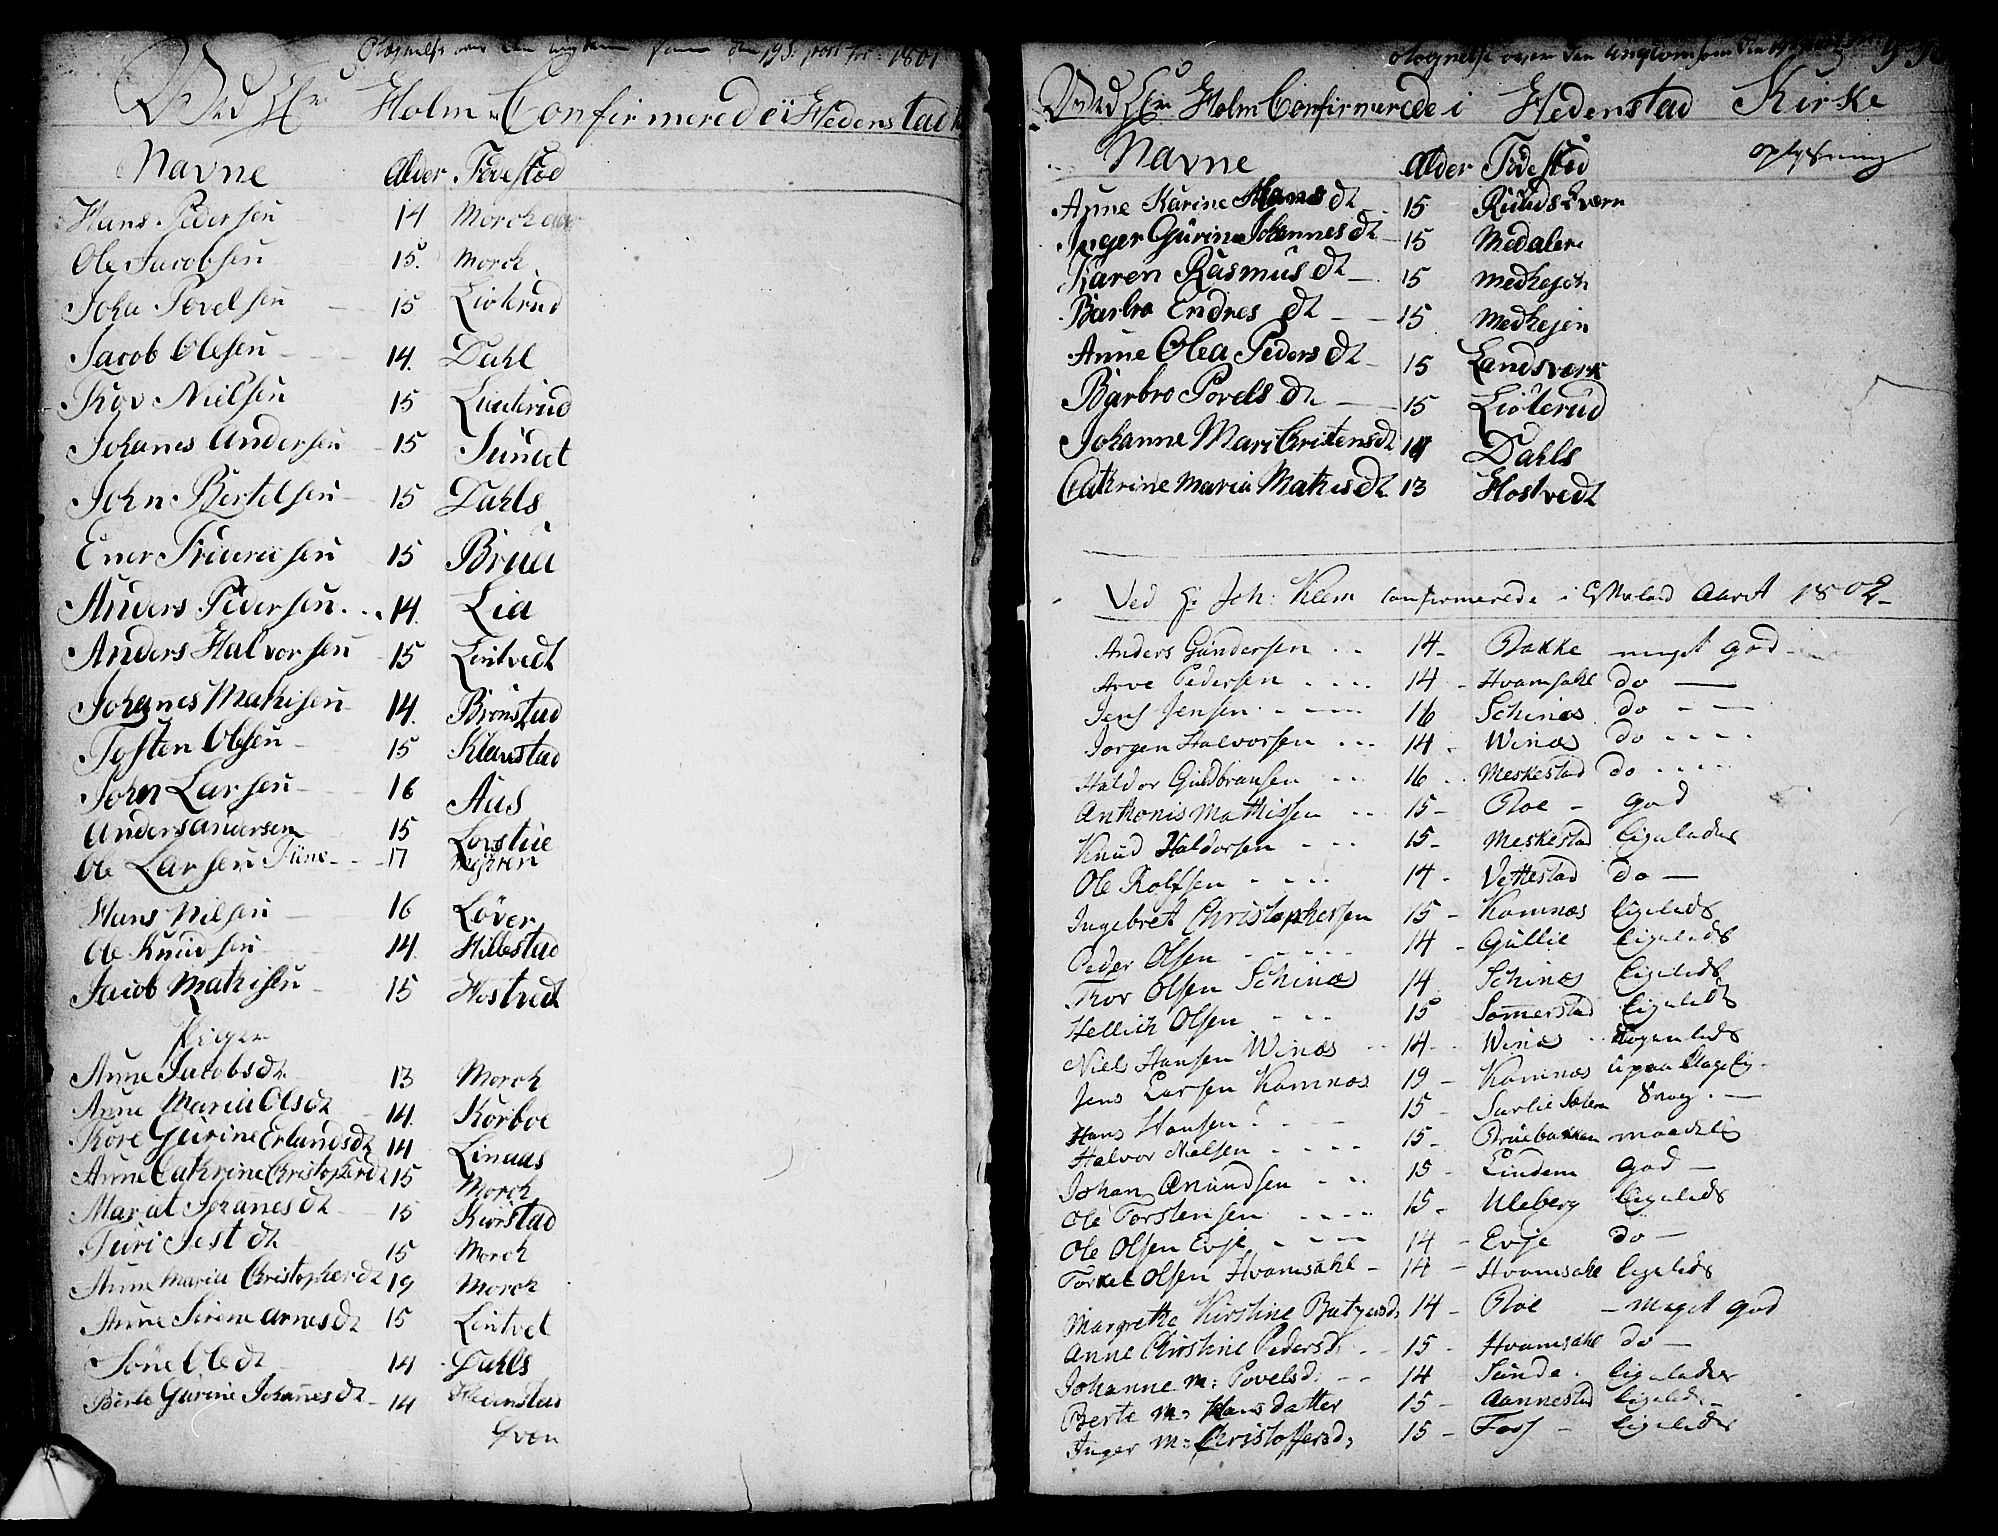 1801
Ved Hr Holm Confirmerede i Hedenstad
Navne Alder Fødestæd
Hans Pedersen 14 Morch
Ole Jacobsen 15. Morch
John Povelsen 15 Liøterud
Jacob Olesen 14. Dahl
Thov Nielsen 15 Liøterud
Johanes Andersen 15 Sundet
John Bertelsen 15 Dahls
15 Brua
Anders Pedersen 14. Lia
Anders Halvorsen 15 Lintvedt
Johannes Mathisen 14. Brønstad
Tosten Olesen 15 Klavestad
John Larsen 16 Aas
Anders Andersen 15
Ole Larsen 17
Hans Nilsen 16 Løver
Ole Knudsen 14. Hillestad
Jacob Mathisen 15 Hostvedt
Piger
Anne Jacobsdt 13 Morch
Anne Maria Olsdt 14. Korboe
Kore Gurine Erlandsdt 14 Linaas
Anne Cathrine Christopherdt 15 Morch
Mariat Johannesdt 15
Turi Jestdt 15 Morch
Anne Maria Christopherdt 19 Morch
Anne Sirene Arnesdt 15 Lintvet
Søne Oledt 14 Dahls
Berte Gurine Johannesdt 14 Hedenstad
Ved Hr Holm Confirmerede i Hedenstad Kirke
Navne Alder Fødestæd oplysning
Anne Karine Hansdt 15 Ruudsqværn
Inger Gurine Johannesdt 15 Medalen
Karen Rasmusdt 15 Medhejen
Barbro Endresdt 15 Medhejen
Anne Olea Pedersdt 15 Landsværk
Barbro Povelsdt 15 Liøterud
Johanne Mari Cristensdt 14 Dahls
Cathrine Maria Mathisdt 13 Hostvedt
Ved Hr Joh: Klem confirmerede i Efteløed Aaret 1802
Anders Gundersen 14 Bakke meget god
Arve Pedersen 14 Hvamsahl do
Jens Jensen 16 Schinæs do
Jørgen Halvorsen 14 Winæs do
Haldor Guldbransen 16 Meskestad do
Anthonis Mathissen 15 Roe god
Knud Haldorsen 15 Meskestad ligeledes
Ole Rolfsen 14 Vettestad do
Ingebret Christophersen 15 Komnæs ligeleds
Peder Olsen 14 Gullie ligeleds
Thor Olsen Schinæs 14 Schinæs ligeleds
Hellich Olsen 15 Sømerstad ligeleds
Niels Hansen Winæs 14 Winæs ligeleds
Jens Larsen Komnæs 19 Komnæs upaaklagelig
Hans Hansen 15
Halvor Nielsen 15 Bruebakken maadelig
Johan Amundsen 15 Lindem god
Ole Torstensen 15 Uleberg ligeleds
Ole Olsen Evje 14 Evje do
Torkel Olsen Hvamsahl 14 Hvamsahl ligeleds
Margrethe Kirstine 14 Roe meget god
Anne Christine Pedersd. 15 Hvamsahl do
Johanne M: Povelsd. 14 Sunde ligeledes
Berte M: Hansdatter 15 Aannestad ligeleds
Inger M: Christoffersd. 15 Foss ligeledes